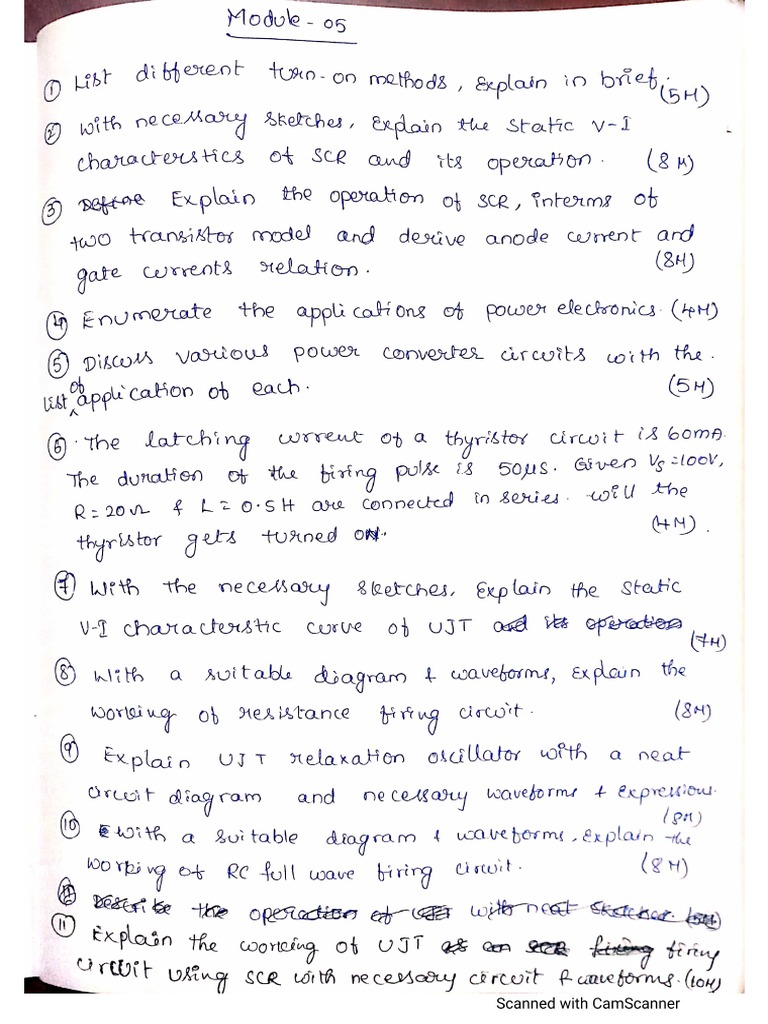 Module - 05
① List different turn-on methods, Explain in brief. (5M)
② With necessary sketches, Explain the static V-I
characterstics of SCR and its operation. (8M)
③ Define Explain the operation of SCR, interms of
two transistor model and derive anode current and
gate currents relation. (8M)
④ Enumerate the applications of power electronics. (4M)
⑤ Discuss various power converter circuits with the
list of application of each. (5M)
⑥ The latching current of a thyristor circuit is 60mA.
The duration of the firing pulse is 50μs. Given Vs=100V,
R=20Ω & L=0.5H are connected in series. Will the
thyristor gets turned on. (4M).
⑦ With the necessary sketches, Explain the static
V-I characterstic curve of UJT and its operation (7M)
⑧ With a suitable diagram & waveforms, Explain the
working of resistance firing circuit. (8M)
⑨ Explain UJT relaxation oscillator with a neat
circuit diagram and necessary waveforms & expressions.
(8M)
⑩ With a suitable diagram & waveforms, Explain the
working of RC full wave firing circuit. (8M)
Describe the operation of with neat sketches.
⑪ Explain the working of UJT as an SCR firing firing
circuit using SCR with necessary circuit & waveforms. (10M)
Scanned with CamScanner